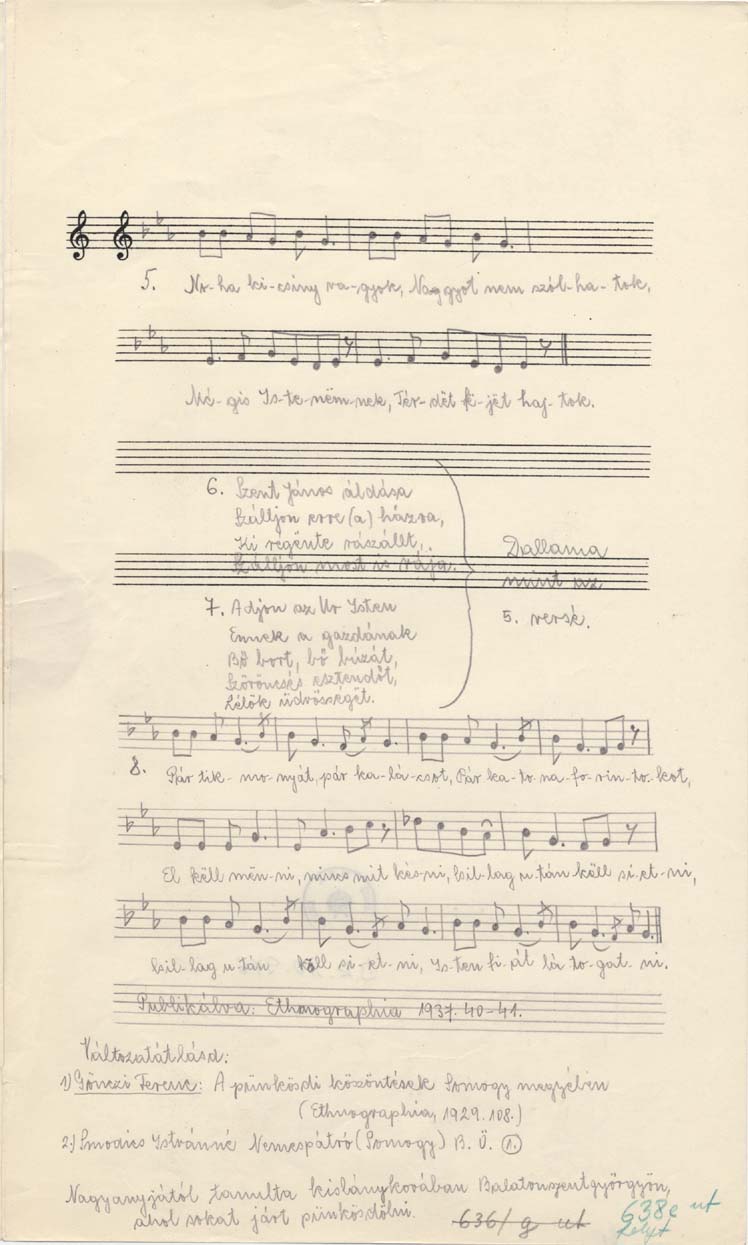 5. No-ha ki-csiny va-gyok, Naggyot nem szól-ha-tok,
Mé-gis Is-te-nëm-nek, Tér-dët fë-jët haj-tok.
6. Szent János áldása
Szálljon erre (a) házra,
Ki régënte rászállt,
Szálljon most is rája.
Dallama
mint az
5. versé.
7. Adjon az Ur Isten
Ennek a gazdának
Bő bort, bő búzát,
Szöröncsés esztendőt,
Lélök üdvösségët.
8. Pár tik-mo-nyát, pár ka-lá-csot, Pár ka-to-na-fo-rin-to-kot,
El këll mën-ni, nincs mit kés-ni, Csil-lag u-tán këll si-et-ni,
Csil-lag u-tán këll si-et-ni, Is-ten fi-át lá-to-gat-ni.
Publikálva: Ethnographia 1937. 40-41.
Változatát lásd:
1) Gönczi Ferenc: A pünkösdi köszöntések Somogy megyében
(Ethnographia, 1929. 108.)
2.) Smodics Istvánné Nemespátró (Somogy) B. Ö. 1.
Nagyanyjától tanulta kislánykorában Balatonszentgyörgyön,
ahol sokat járt pünkösdölni.
636/g ut
638e ut
helyt